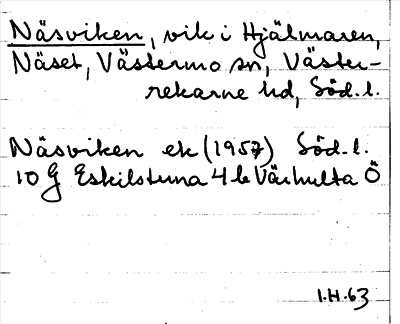 Näsviken, vik i Hjälmaren,
Näset, Västermo sn, Väster-
rekarne hd, Söd. l.
Näsviken ek (1957) Söd. l.
10 G Eskilstuna 4 b Värhulta Ö
1.H.63